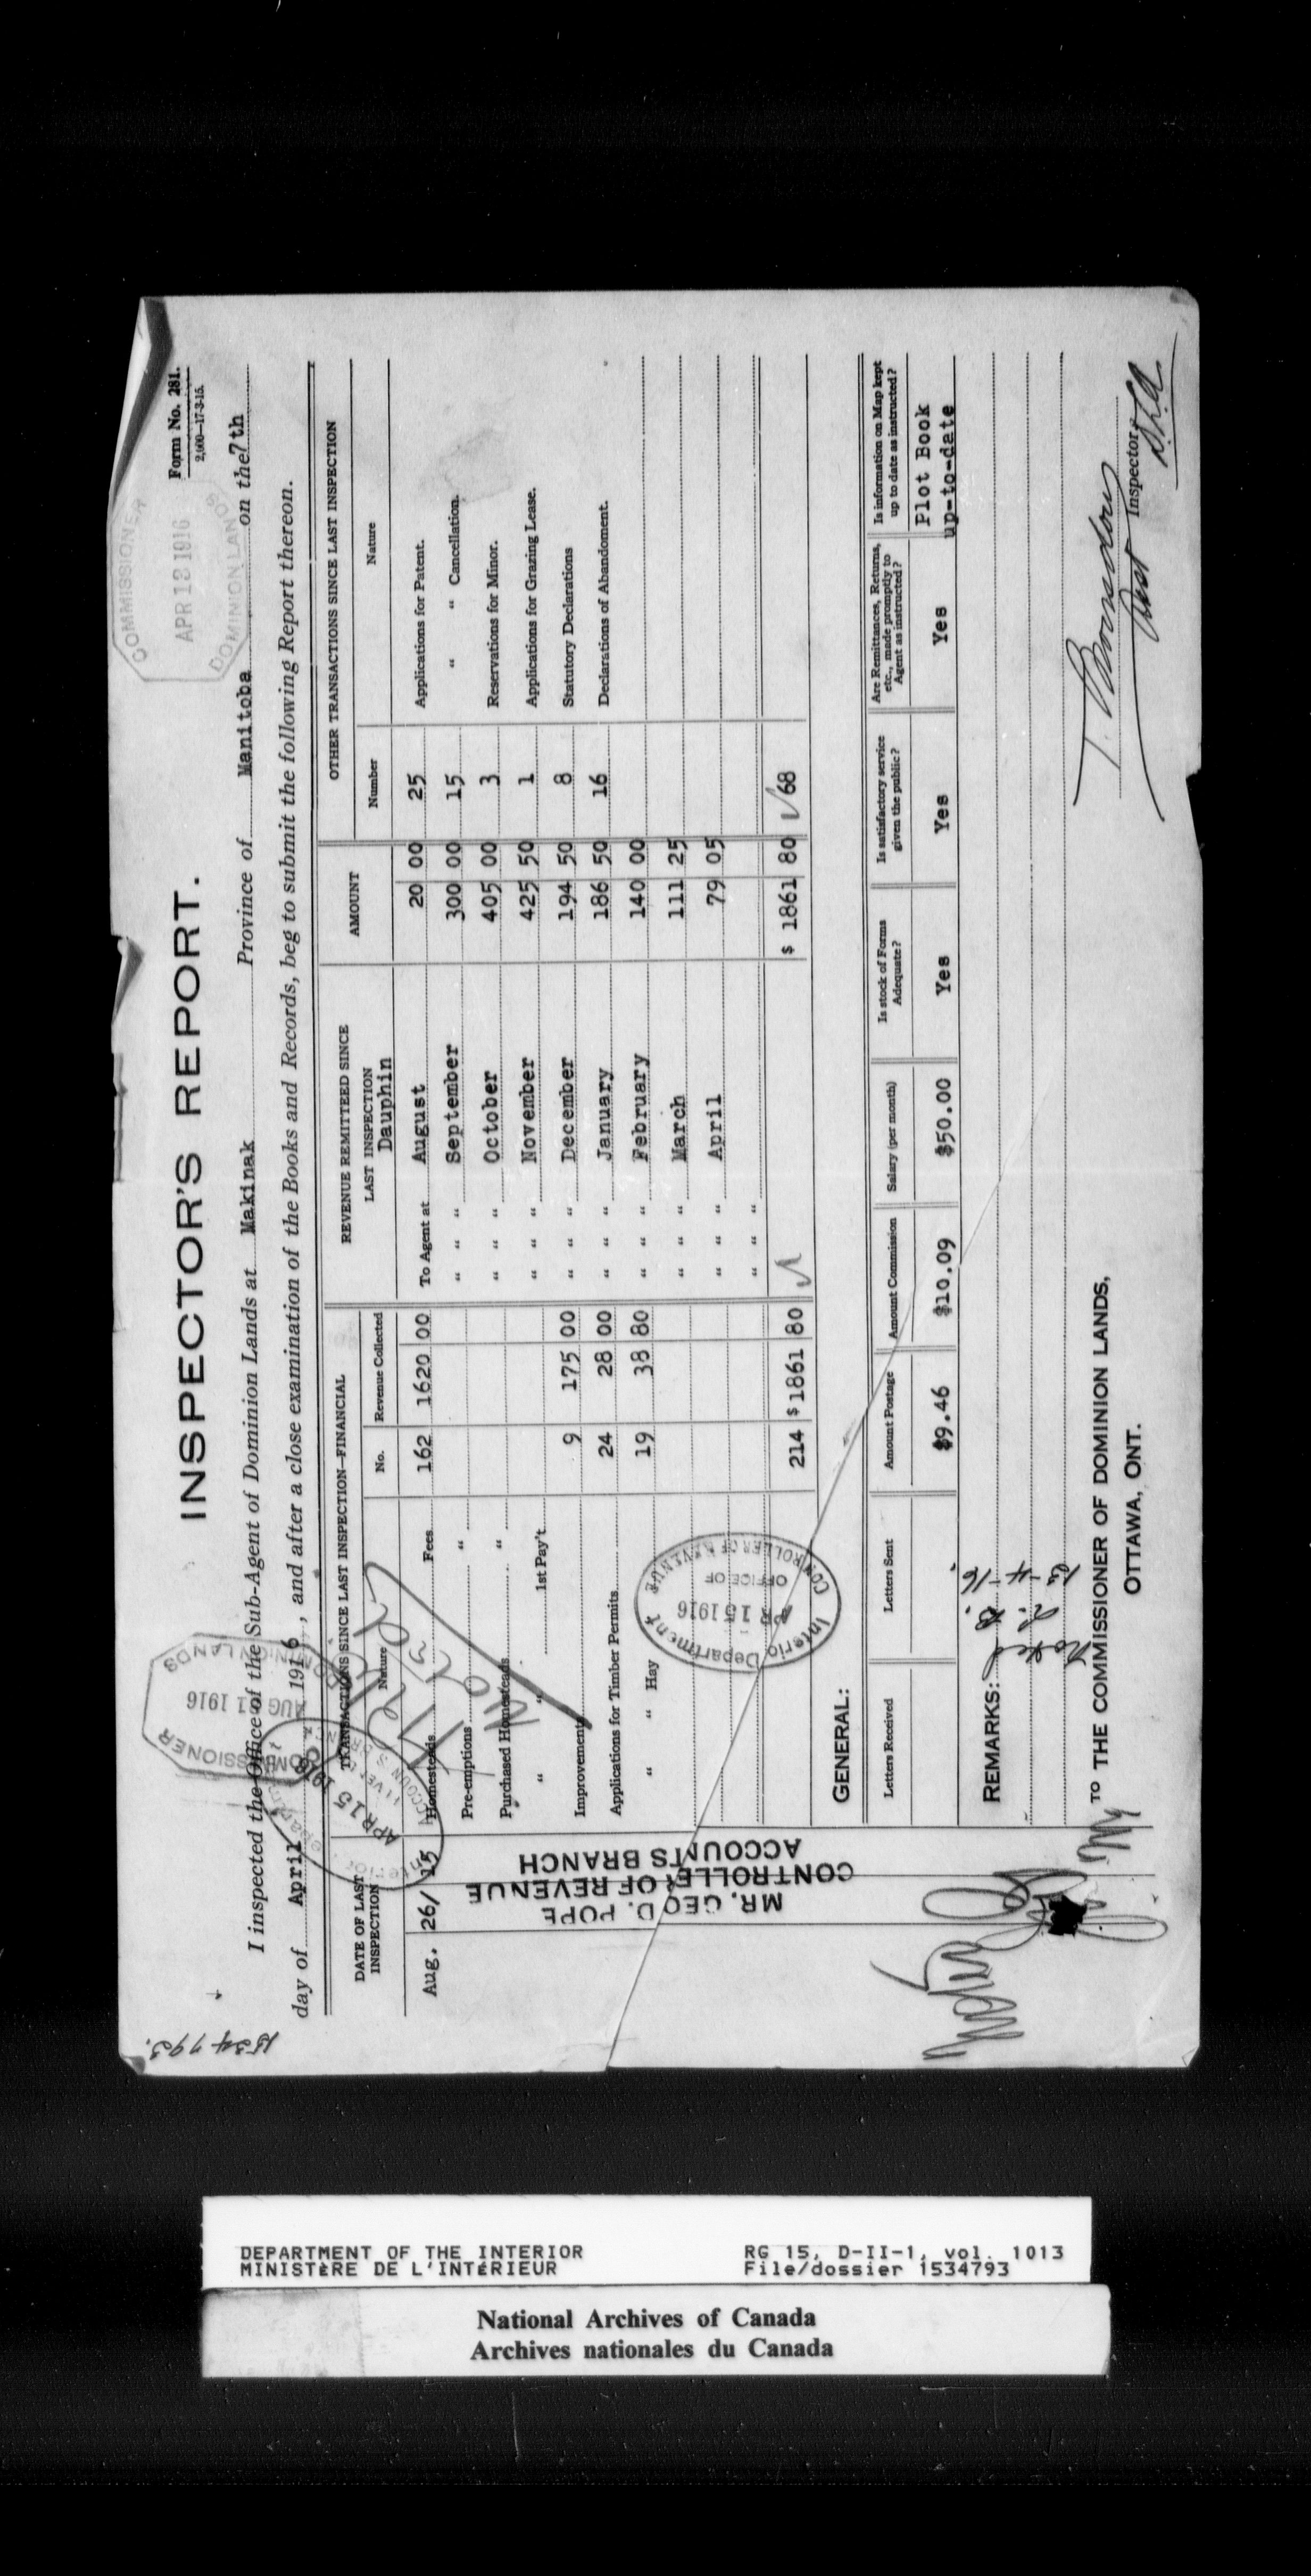 INSPECTOR'S REPORT.
Form No. 281.
2,000—17-3-15.
COMMISSIONER
APR 13 1916
DOMINION LANDS
COMMISSIONER
AUG 21 1916
DOMINION LANDS
1534793.
I inspected the Office of the Sub-Agent of Dominion Lands at Makinak Province of Manitoba on the 7th
day of April 1916, and after a close examination of the Books and Records, beg to submit the following Report thereon.
DATE OF LAST INSPECTION
TRANSACTIONS SINCE LAST INSPECTION—FINANCIAL
REVENUE REMITTEED SINCE LAST INSPECTION
AMOUNT
OTHER TRANSACTIONS SINCE LAST INSPECTION
Nature No. Revenue Collected Dauphin Number Nature
Aug. 26/15 Homesteads Fees 162 1620 00 To Agent at August 20 00 25 Applications for Patent.
Pre-emptions " " " " September 300 00 15 " " Cancellation.
Purchased Homesteads " " " " October 405 00 3 Reservations for Minor.
" " 1st Pay't " " " November 425 50 1 Applications for Grazing Lease.
Improvements 9 175 00 " " " December 194 50 8 Statutory Declarations
Applications for Timber Permits 24 28 00 " " " January 186 50 16 Declarations of Abandoment.
" " Hay 19 38 80 " " " February 140 00
" " " March 111 25
" " " April 79 05
" " "
214 $1861 80 $ 1861 80 68
MR. GEO D. POPE
CONTROLLER OF REVENUE
ACCOUNTS BRANCH
APR 15 1916
Interior Department
APR 15 1916
OFFICE OF
CONTROLLER OF REVENUE
GENERAL:
Letters Received
Letters Sent
Amount Postage
Amount Commission
Salary (per month)
Is stock of Forms Adequate?
Is satisfactory service given the public?
Are Remittances, Returns, etc., made promptly to Agent as instructed?
Is information on Map kept up to date as instructed?
$9.46 $10.09 $50.00 Yes Yes Yes Plot Book
up-to-date
REMARKS:
Noted
Inspector
TO THE COMMISSIONER OF DOMINION LANDS,
OTTAWA, ONT.
DEPARTMENT OF THE INTERIOR
MINISTÈRE DE L'INTÉRIEUR
RG 15, D-II-1, vol. 1013
File/dossier 1534793
National Archives of Canada
Archives nationales du Canada